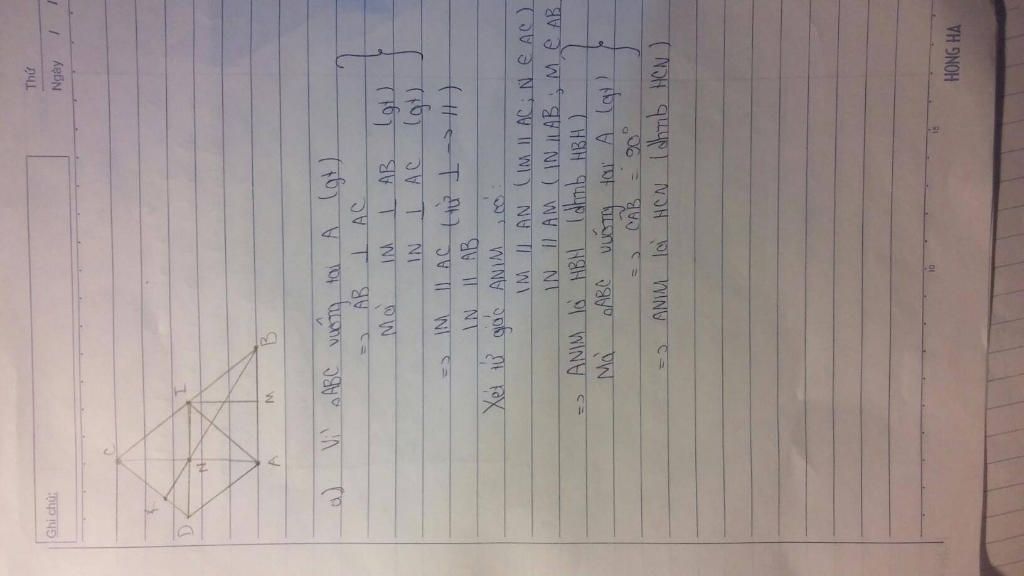 Thứ
Ngày / /
Ghi chú:
C
I
D
N
A
M
B
a) Vì △ABC vuông tại A (gt)
=> AB ⊥ AC
Mà IM ⊥ AB (gt)
IN ⊥ AC (gt)
=> IM // AC (từ ⊥ -> //)
IN // AB
Xét tứ giác ANIM, có:
IM // AN (IM // AC; N ∈ AC)
IN // AM (IN // AB; M ∈ AB
=> ANIM là HBH (dhnb HBH)
Mà △ABC vuông tại A (gt)
=> CAB = 90°
=> ANIM là HCN (dhnb HCN)
10
15
HONG HA